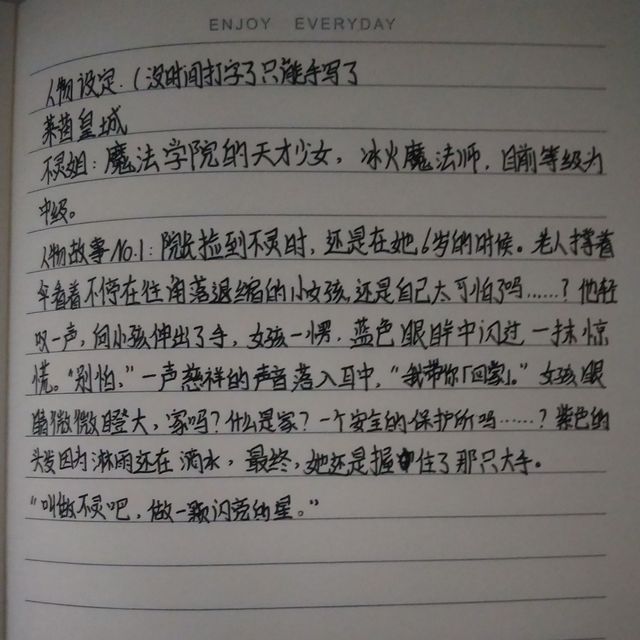 ENJOY EVERYDAY
人物设定.（没时间打字了只能手写了
莱茵皇城
不灵姐：魔法学院的天才少女，冰火魔法师，目前等级为
中级。
人物故事No.1：院长捡到不灵时，还是在她6岁的时候。老人撑着
伞看着不停在往角落退缩的小女孩，还是自己太可怕了吗……？他轻
叹一声，向小孩伸出了手，女孩一愣，蓝色眼眸中闪过一抹惊
慌。“别怕，”一声慈祥的声音落入耳中，“我带你「回家」。”女孩眼
睛微微瞪大，家吗？什么是家？一个安全的保护所吗……？紫色的
头发因为淋雨还在滴水，最终，她还是握住了那只大手。
“叫做不灵吧，做一颗闪亮的星。”